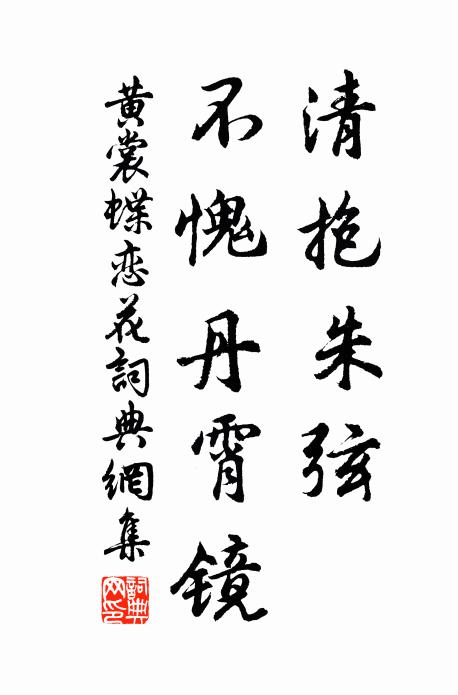 清抱朱弦
不愧丹霄镜
黄裳蝶恋花詞典網集
詞典网印